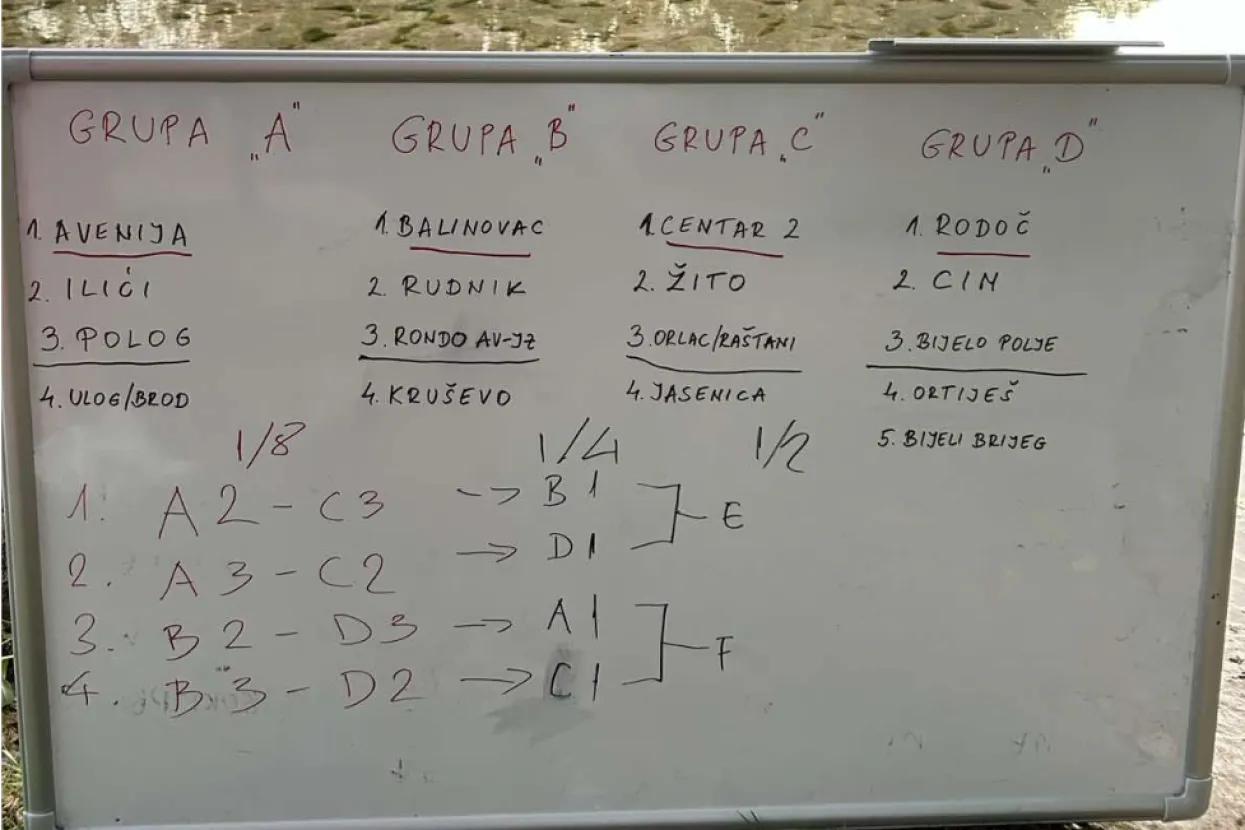 GRUPA „A"
GRUPA „B"
GRUPA „C"
GRUPA „D"
1. AVENIJA
2. ILIĆI
3. POLOG
4. ULOG/BROD
1. BALINOVAC
2. RUDNIK
3. RONDO AV-JZ
4. KRUŠEVO
1. CENTAR 2
2. ŽITO
3. ORLAC/RAŠTANI
4. JASENICA
1. RODOČ
2. CIM
3. BIJELO POLJE
4. ORTIJEŠ
5. BIJELI BRIJEG
1/8
1/4
1/2
1. A2 - C3 -> B1
2. A3 - C2 -> D1
E
3. B2 - D3 -> A1
4. B3 - D2 -> C1
F